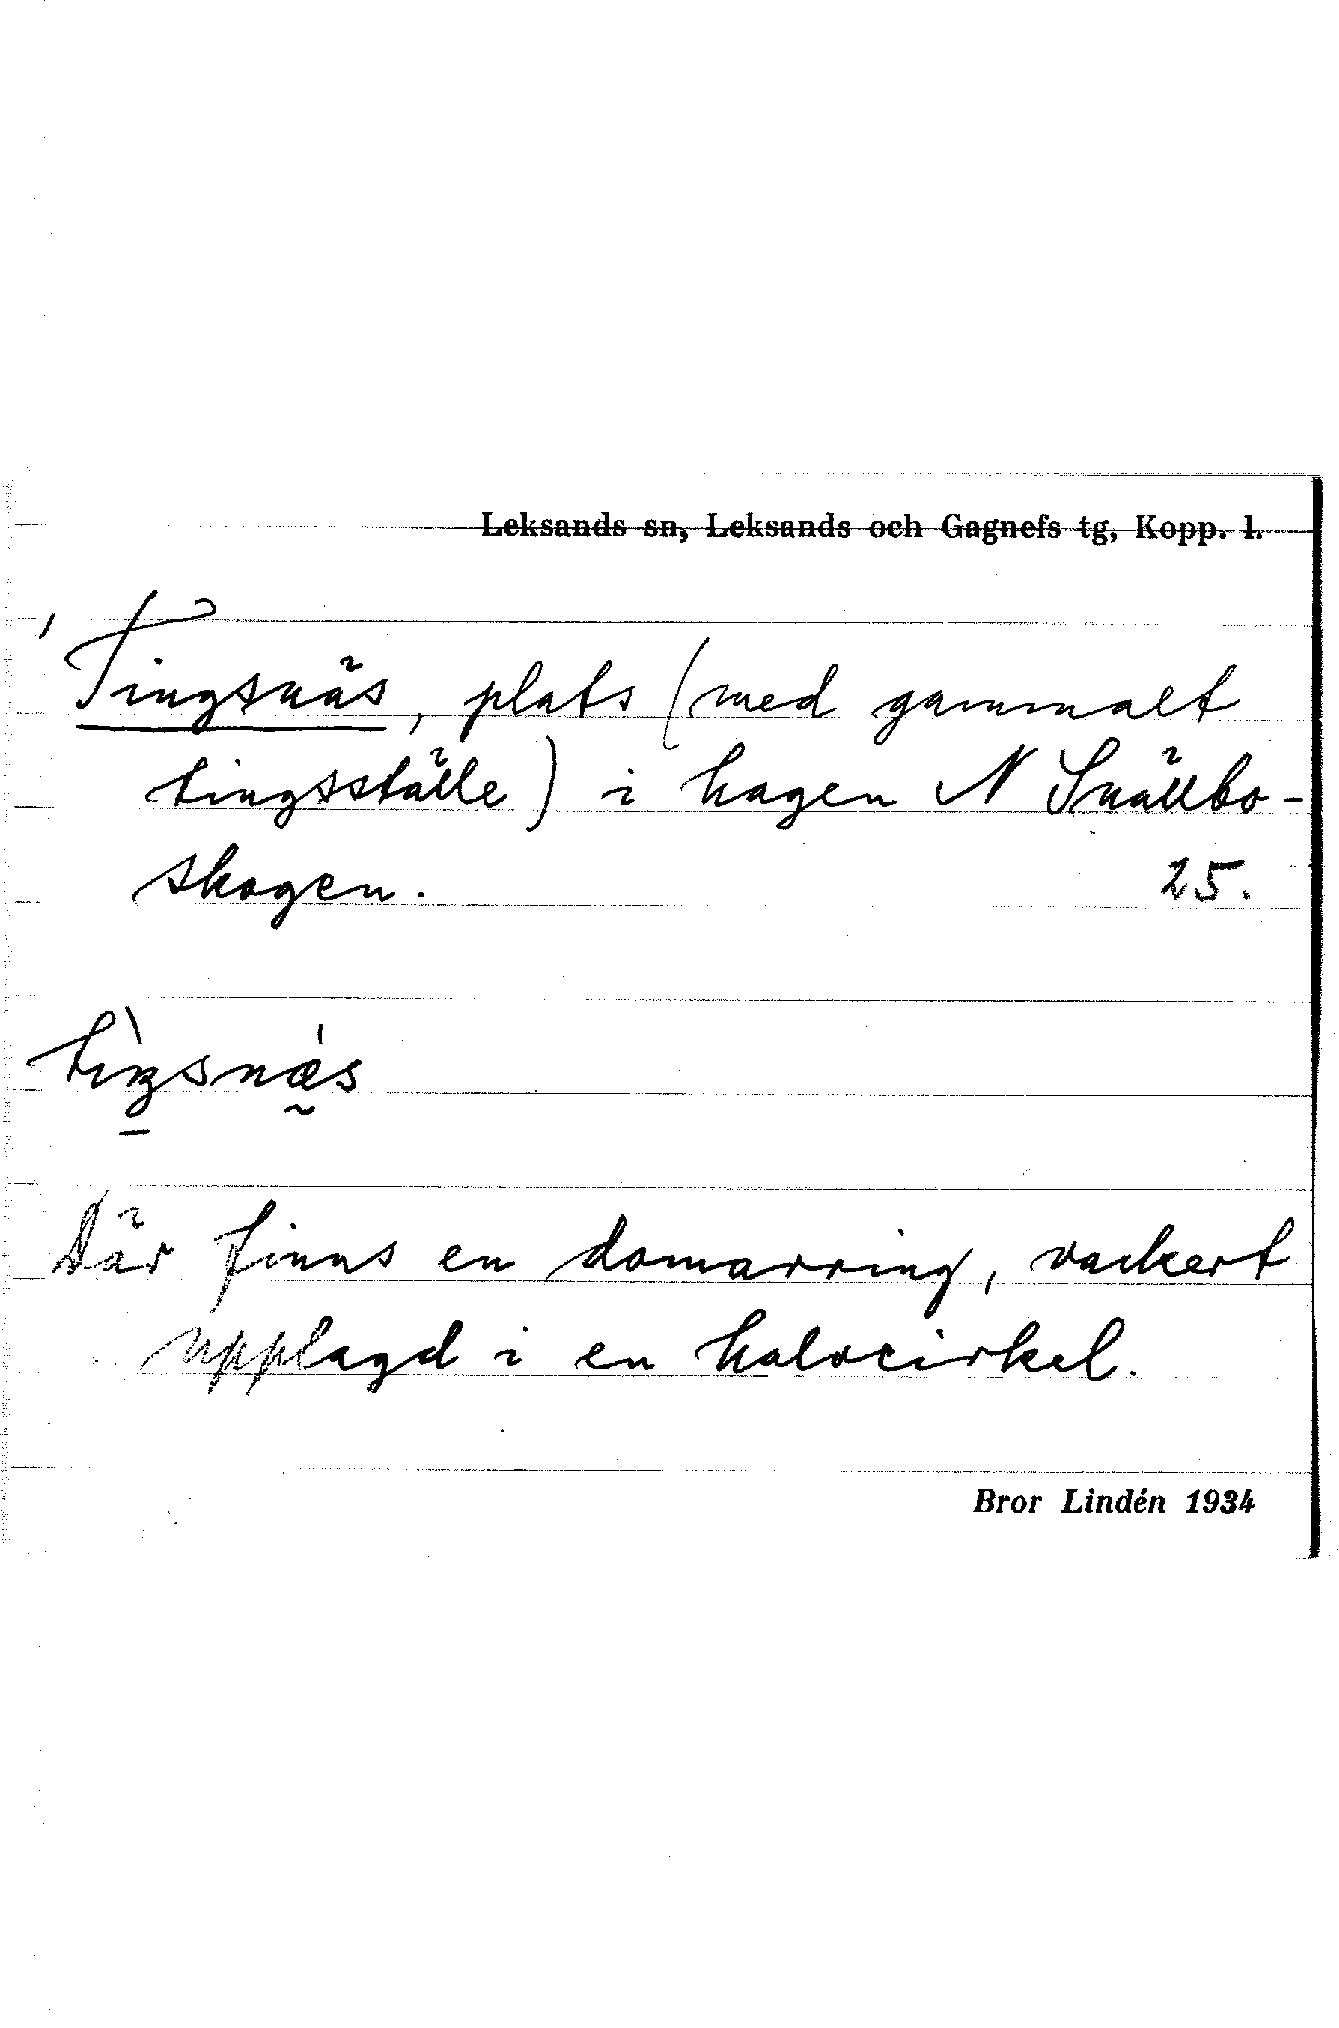 Leksands sn, Leksands och Gagnefs tg, Kopp. l.
Tingsnäs, plats (med gammalt
tingsställe) i hagen N Snällbo-
skogen. 25.
tìŋsnǽs
Där finns en domarring, vackert
upplagd i en halvcirkel.
Bror Lindén 1934